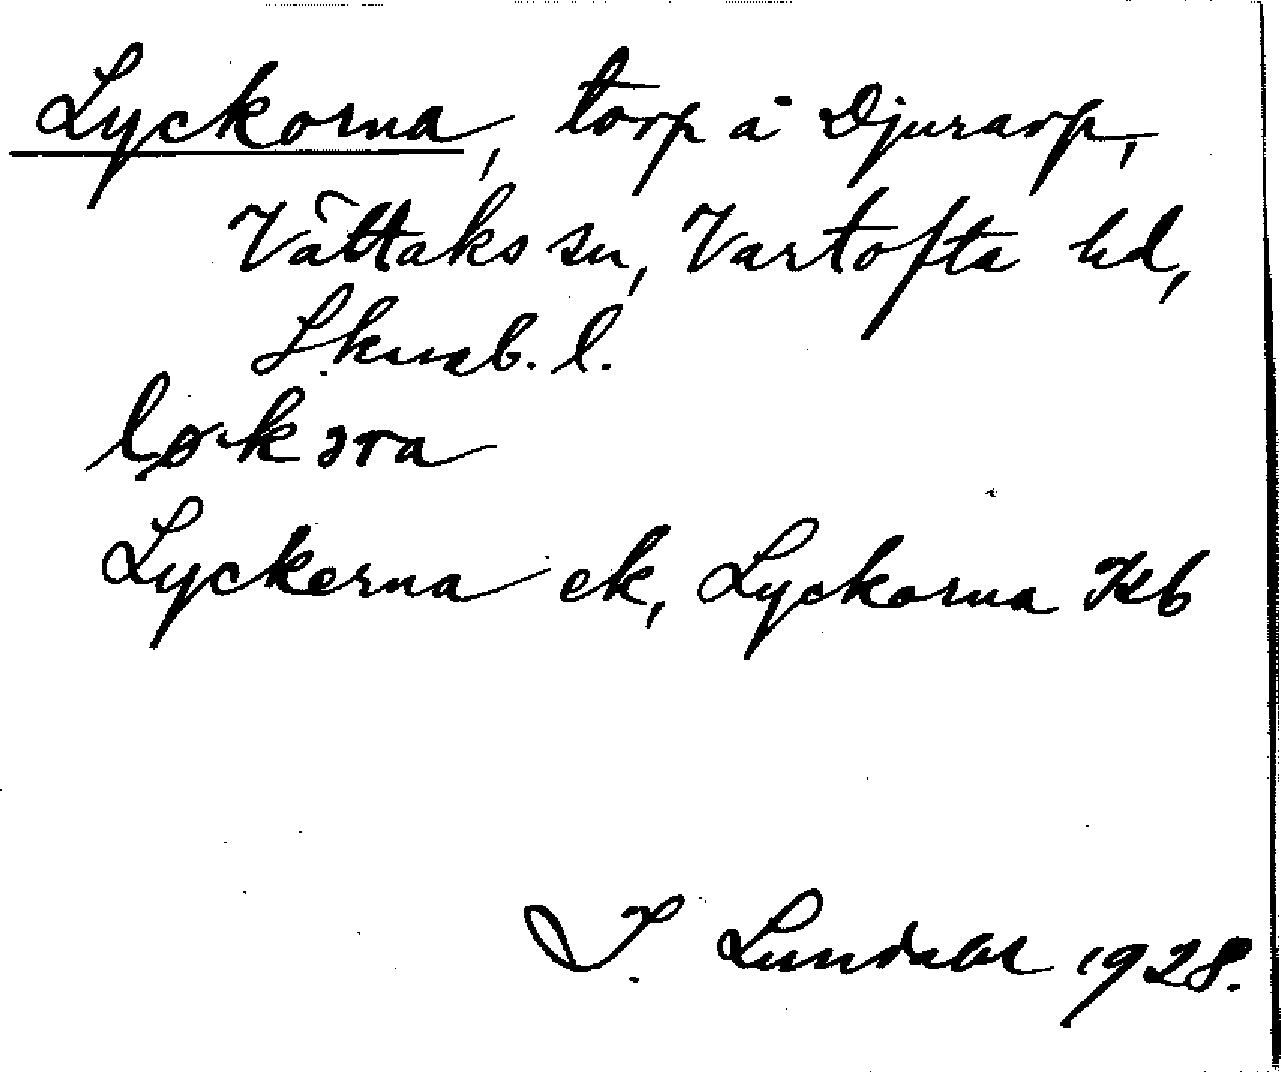 Lyckorna, torp å Djurarp,
Vättaks sn, Vartofta hd,
Skarab. l.
Lyckerna ek, Lyckorna Hb
I. Lundahl 1928.